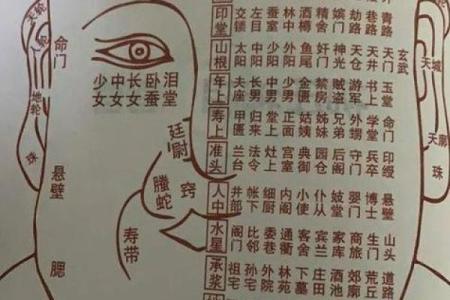 天轮
人轮
地轮
珠
命门
少女 中女 长女 卧蚕 泪堂
廷尉
悬壁
螣蛇
窍
寿带
腮
青路
印堂 交锁 左目 中阳 林中 酒樽 精舍 嫔门 劫路 巷路
山根 太阳 中阳 少阳 鱼尾 奸门 神光 天仓 天井 天门 玄武
年上 夫座 长男 中男 少男 金匮 禁房 贼盗 游军 书上 玉堂
寿上 甲匮 归来 堂上 正面 姑姨 姊妹 兄弟 外甥 命门
准头 兰台 法令 灶上 宫室 典御 园仓 后阁 守门 兵卒 印绶
人中 井部 帐下 细厨 内阁 小使 仆从 妓堂 婴门 博士 悬壁
水星 阁门 比邻 委巷 通衢 客舍 宾兰 家库 商旅 生门 山头
承浆 祖宅 孙宅 外院 林苑 下墓 庄田 酒池 郊廓 荒丘 道路
天城
天廓
珠